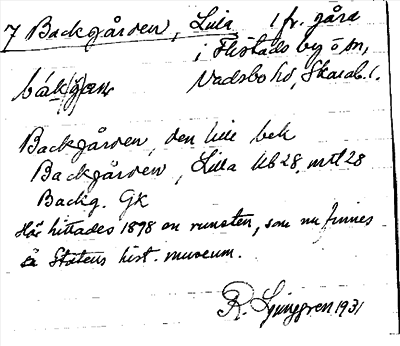 7 Backgården, Lilla 1 fr. gård
i Flistads by o sn,
Vadsbo hd, Skarab. l.
Backgården, den lille bek
Backgården, Lilla Ub 28, mtl 28
Backg. Gk
Här hittades 1898 en runsten, som nu finnes
å Statens hist. museum.
R. Ljunggren 1931